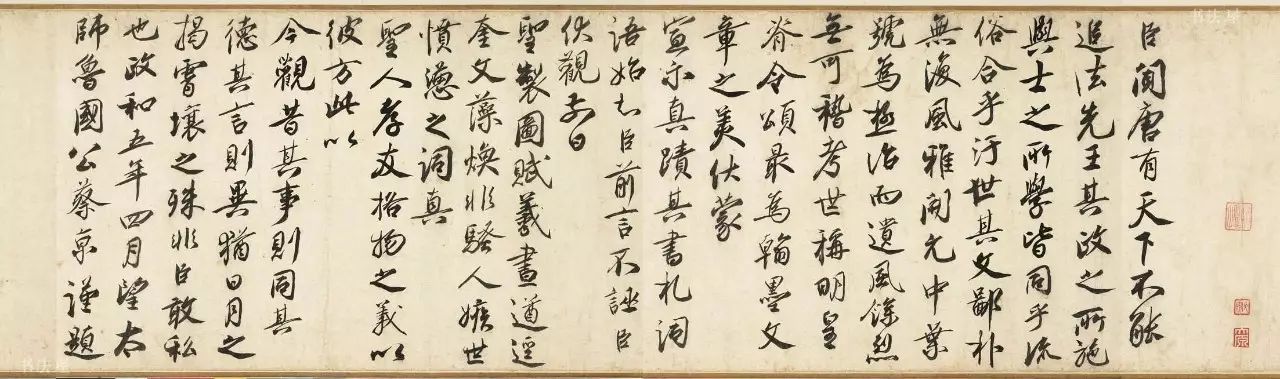 臣聞唐有天下不能
追法先王其政之所施
與士之所學皆同乎流
俗合乎汙世其文鄙朴
無復風雅開元中葉
號為極治而遺風餘烈
無可稽考世稱明皇
脊令頌最為翰墨文
章之美伏蒙
宣示真蹟其書札詞
語始知臣前言不誣臣
伏觀前日
聖製圖賦羲畫遒逕
奎文藻煥非騷人嫉世
憤懣之詞真
聖人孝友格物之義以
彼方此以
今觀昔其事則同其
德其言則異猶日月之
揭霄壤之殊非臣敢私
也政和五年四月望太
師魯國公蔡京謹題
书法屋
书法屋